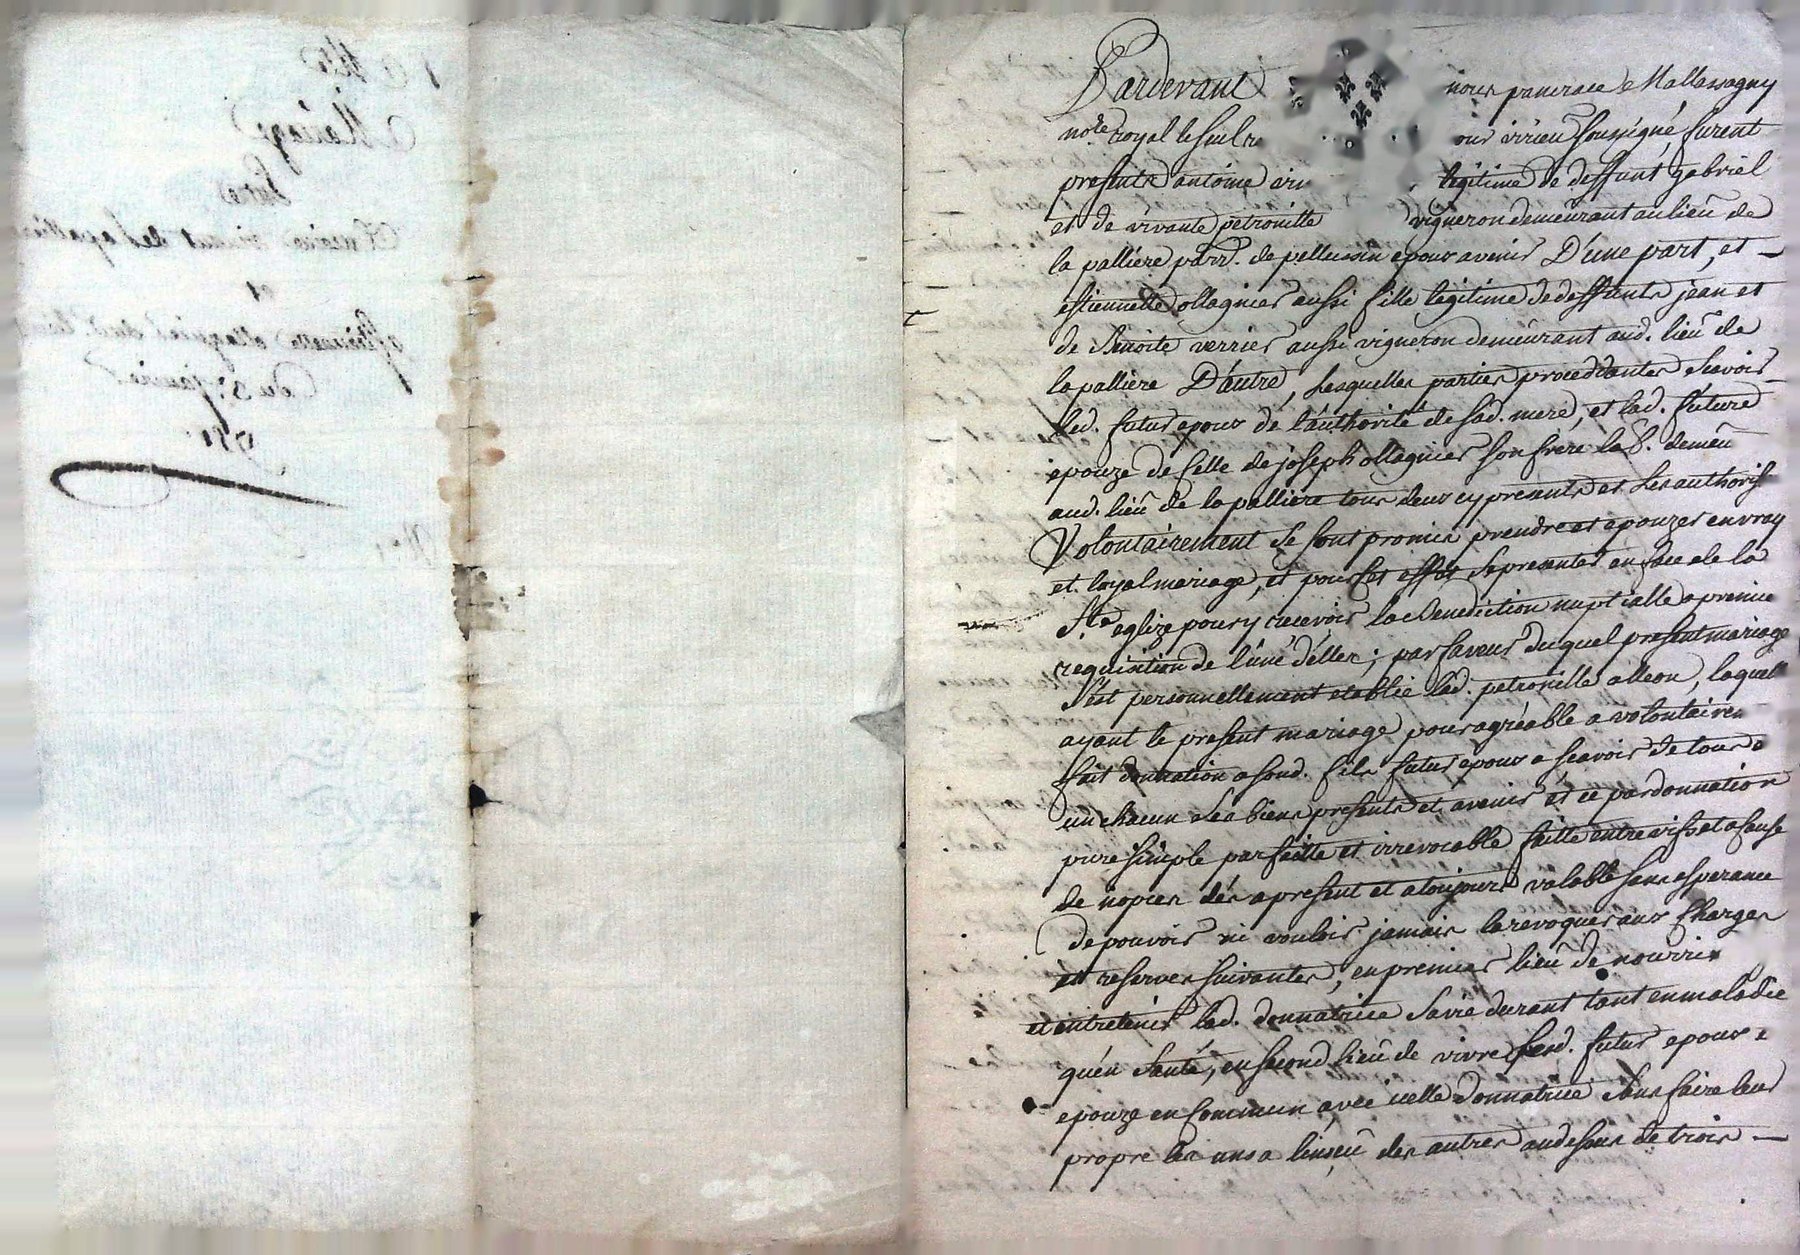 Mariage
Entre
Antoine virieut de lapallier
et
estiennette ollagnier dud. lieu
du 3e. janvier
Pardevant nous pancrace Mallassagny
nore. royal le seul re ons virieu soussigné, furent
presents antoine viri legitime de deffunt gabriel
et de vivante petronille vigneron demeurant au lieu de
la palliere parr. de pellussin epoux avenir D'une part, et
estiennette ollagnier aussi fille legitime de deffunts jean et
de Benoite verrier aussi vigneron demeurant aud. lieu de
la palliere D'autre, Lesquelles parties proceddantes scavoir
led. futur epoux de l'authorité de sad. mere, et lad. future
epouze de celle de joseph ollagnier son frere lab. demeu
aud. lieu de la palliere tous deux cy presents et les authoris
Volontairement se sont promis prendre et epouzer en vray
et loyal mariage, et pour cet effet se presenter en face de la
Ste eglize pour y recevoir la Benediction nuptialle a premie
requisition de l'une d'elles; par faveur duquel present mariage
s'est personnellement etablie lad. petronille alleon, laquelle
ayant le present mariage pour agréable a volontairem
fait donnation a sond. fils futur epoux a scavoir de tous &
un chacun ses biens presents et avenir et ce par donnation
pure simple parfaitte et irrevocable faitte entre vifs et a cause
de nopces dés apresent et a toujours valable sans esperance
de pouvoir ni vouloir jamais la revoquer aux charges
et reserves suivantes, en premier lieu de nourrir
et entretenir lad. donnatrice sa vie durant tant en maladie
qu'en santé, en second lieu de vivre lesd. futur epoux &
epouze en commun avec icelle donnatrice sans faire leur
propre les uns a l'insçu des autres au dessus de trois